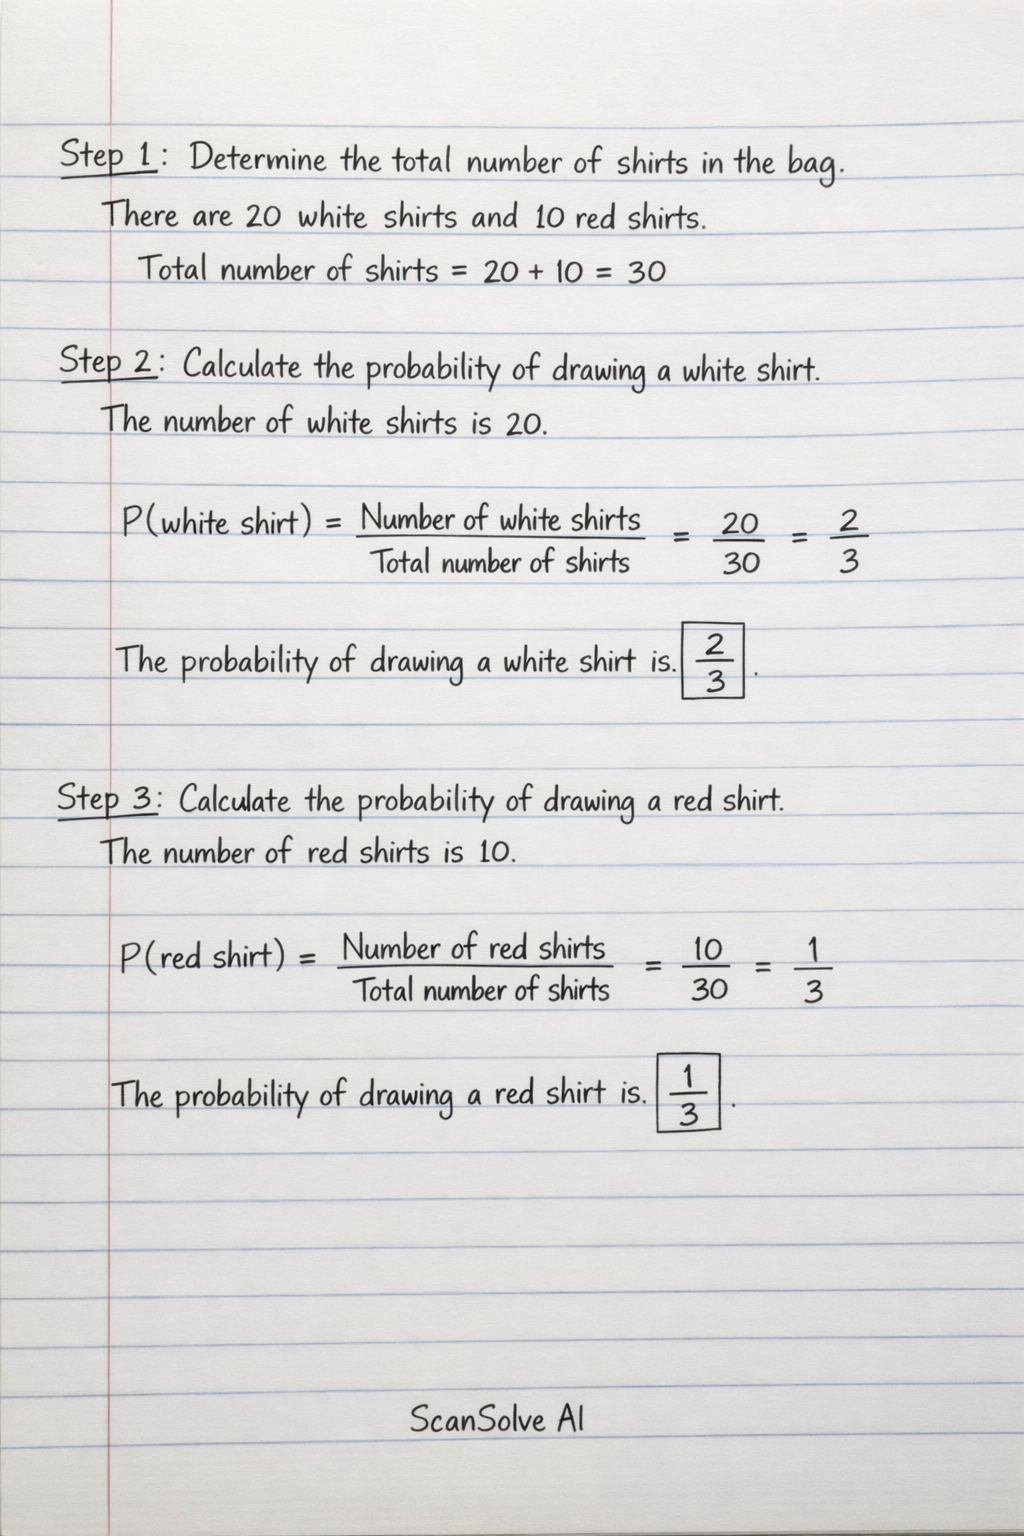 Step 1: Determine the total number of shirts in the bag.
There are 20 white shirts and 10 red shirts.
Total number of shirts = 20 + 10 = 30
Step 2: Calculate the probability of drawing a white shirt.
The number of white shirts is 20.
P(white shirt) = Number of white shirts / Total number of shirts = 20/30 = 2/3
The probability of drawing a white shirt is. 2/3 .
Step 3: Calculate the probability of drawing a red shirt.
The number of red shirts is 10.
P(red shirt) = Number of red shirts / Total number of shirts = 10/30 = 1/3
The probability of drawing a red shirt is. 1/3 .
ScanSolve AI